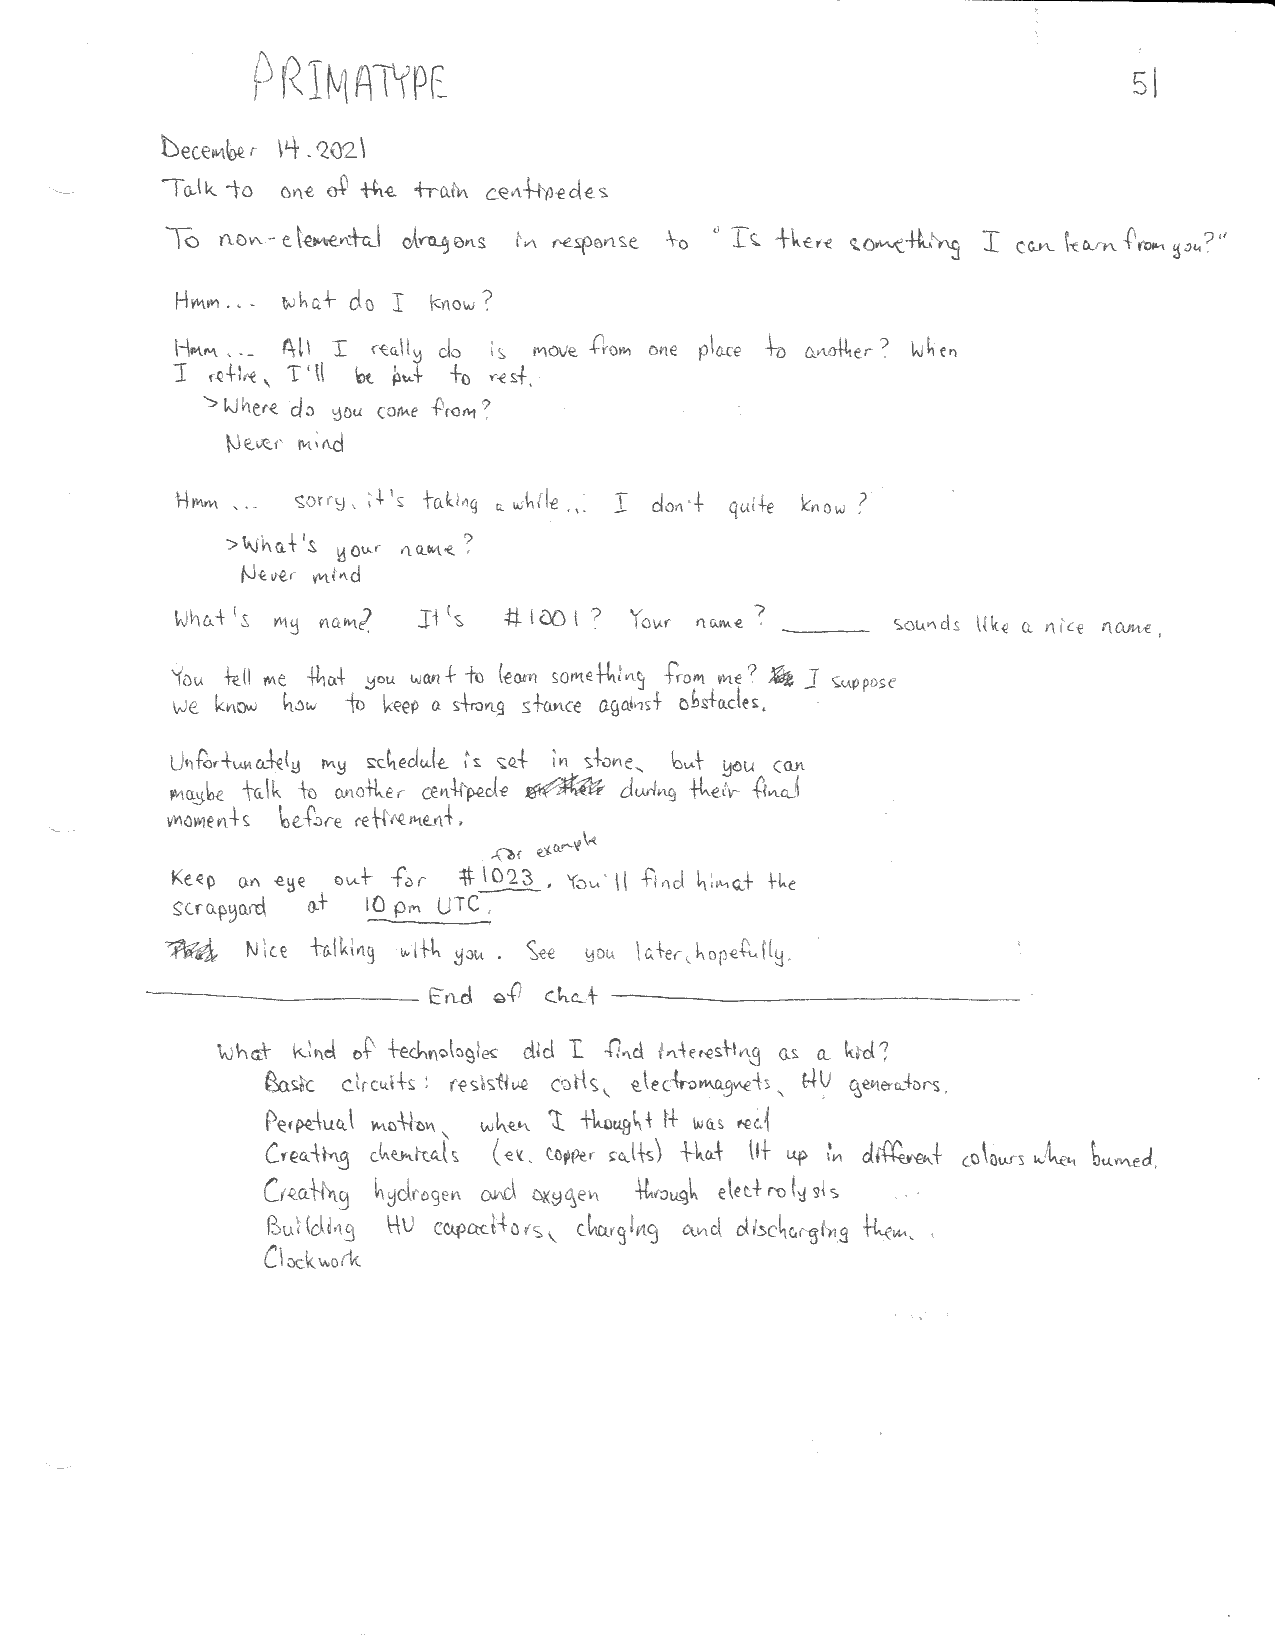 PRIMATYPE 51
December 14. 2021
Talk to one of the train centipedes
To non-elemental dragons in response to "Is there something I can learn from you?"
Hmm... what do I know?
Hmm... All I really do is move from one place to another? When
I retire, I'll be put to rest.
>Where do you come from?
Never mind
Hmm ... sorry, it's taking a while... I don't quite know?
>What's your name?
Never mind
What's my name? It's #1001? Your name? ______ sounds like a nice name.
You tell me that you want to learn something from me? I suppose
we know how to keep a strong stance against obstacles.
Unfortunately my schedule is set in stone, but you can
maybe talk to another centipede during their final
moments before retirement.
for example
Keep an eye out for #1023. You'll find him at the
scrapyard at 10 pm UTC.
Nice talking with you. See you later, hopefully.
End of chat
What kind of technologies did I find interesting as a kid?
Basic circuits: resistive coils, electromagnets, HV generators.
Perpetual motion, when I thought it was real
Creating chemicals (ex. copper salts) that lit up in different colours when burned.
Creating hydrogen and oxygen through electrolysis
Building HV capacitors, charging and discharging them.
Clockwork